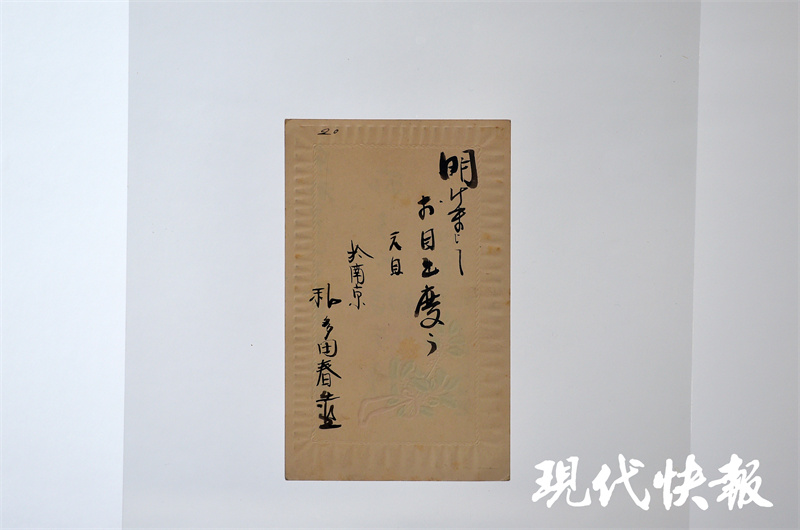 20
明けまして
お目出度う
元旦
於南京
和多田春
現代快報